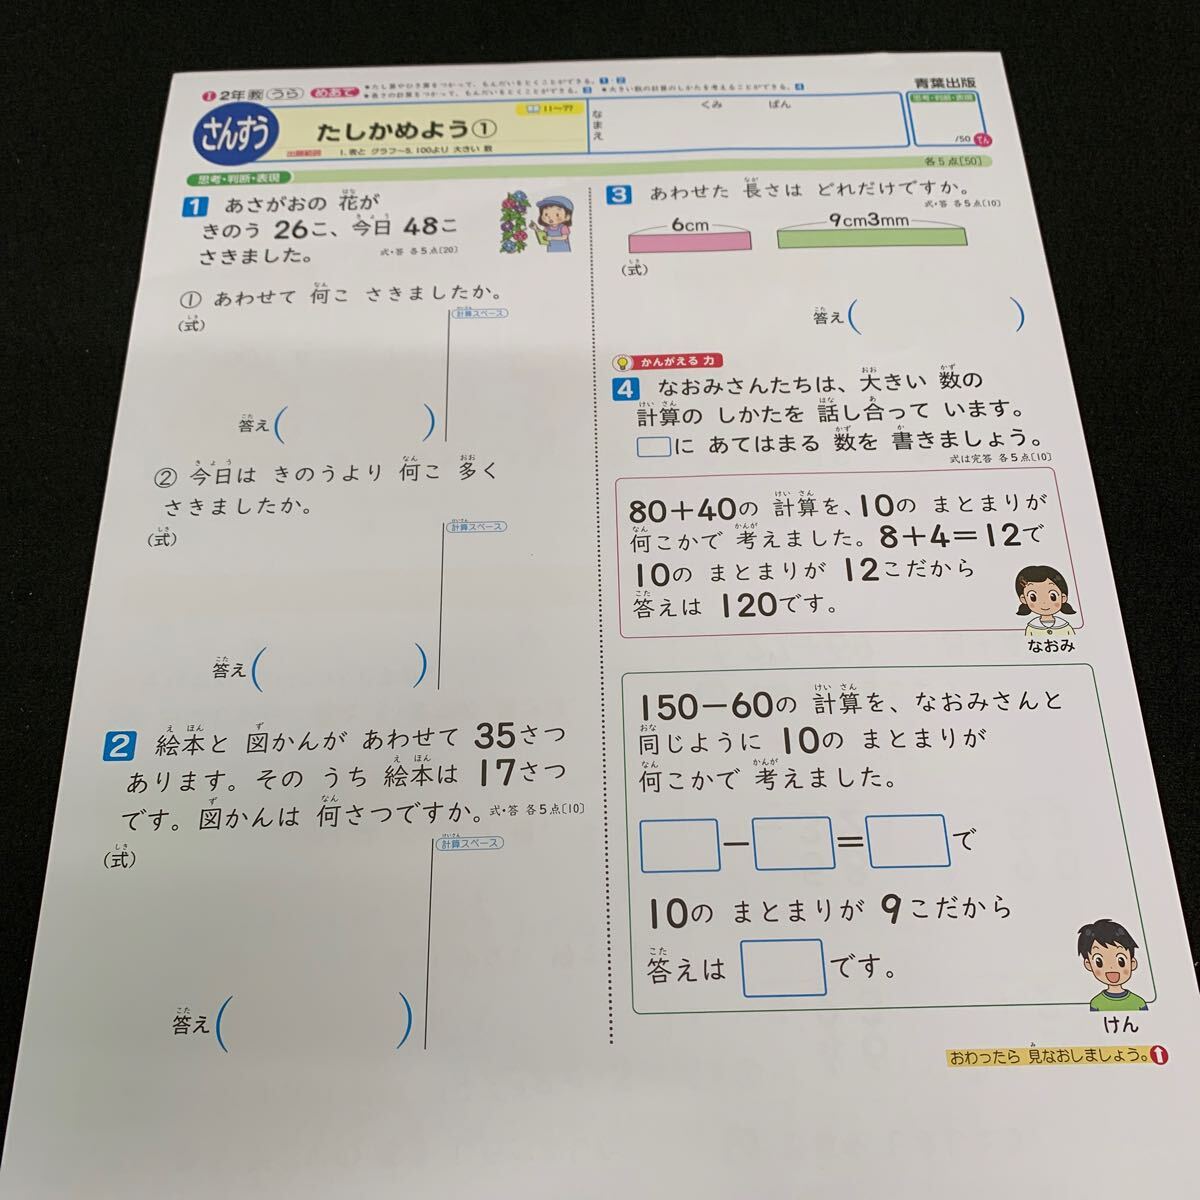 1 2年 教 うら めあて ★たし算やひき算をつかって、もんだいをとくことができる。1・2
★長さの計算をつかって、もんだいをとくことができる。3 ★大きい数の計算のしかたを考えることができる。4
青葉出版
さんすう たしかめよう① 11〜77
出題範囲 1.表と グラフ〜5.100より 大きい 数
なまえ
くみ ばん
思考・判断・表現
/50 てん
思考・判断・表現
各5点〔50〕
1 あさがおの 花が
きのう 26こ、今日 48こ
さきました。 式・答 各5点〔20〕
① あわせて 何こ さきましたか。
(式)
計算スペース
答え( )
② 今日は きのうより 何こ 多く
さきましたか。
(式)
計算スペース
答え( )
2 絵本と 図かんが あわせて 35さつ
あります。その うち 絵本は 17さつ
です。図かんは 何さつですか。 式・答 各5点〔10〕
(式)
計算スペース
答え( )
3 あわせた 長さは どれだけですか。
式・答 各5点〔10〕
6cm 9cm3mm
(式)
答え( )
かんがえる 力
4 なおみさんたちは、大きい 数の
計算の しかたを 話し合って います。
□に あてはまる 数を 書きましょう。
式は完答 各5点〔10〕
80+40の 計算を、10の まとまりが
何こかで 考えました。8+4=12で
10の まとまりが 12こだから
答えは 120です。
なおみ
150-60の 計算を、なおみさんと
同じように 10の まとまりが
何こかで 考えました。
□-□=□で
10の まとまりが 9こだから
答えは □です。
けん
おわったら 見なおしましょう。